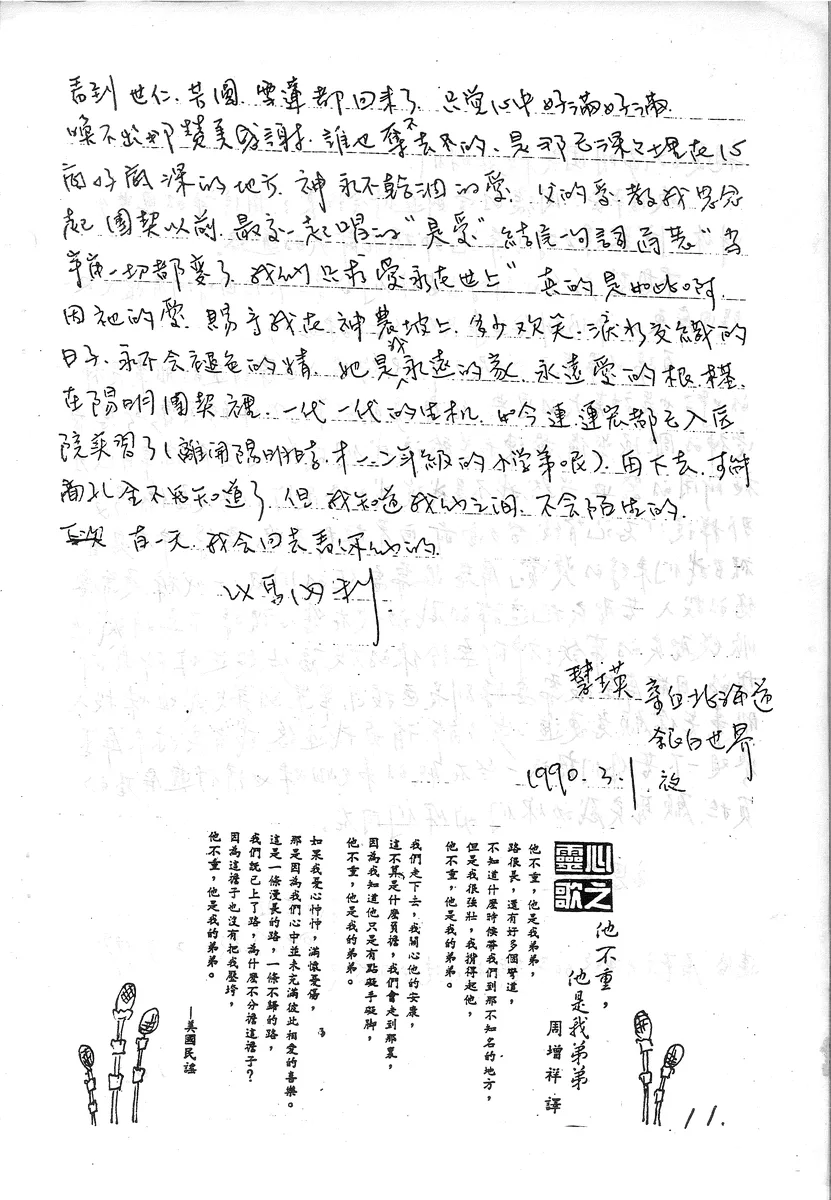 看到 世仁. 苦圓. 雲蓮 都回來了. 只覺心中好滿好滿.
喚不出那讚美感謝. 誰也奪不去的. 是那已深深埋在心
底好底深的地方. 神永不乾涸的愛. 父的愛. 教我思念
起團契以前 最交一起唱的"是愛" 結尾一句詞 "当
一切都變了 我们只求愛永在世上" 真的是如此啊.
因祂的愛. 賜予我在神農坡上. 多少欢笑. 淚水交織的
日子. 永不会褪色的情. 她是我永遠的家. 永遠愛的根基.
在陽明團契裡. 一代一代的生机. 如今連 都已入医
院実習了(離開陽明時. 才一.二年級的小学弟哦). 再下去.
面孔全不知道了. 但我知道我们之间. 不会陌生的.
有一天. 我会回去看你们的.
以馬內利.
慧瑛 寄自北海道
銀白世界
1990.3.1.
心之靈歌
他不重，
他是我弟弟
周增祥 譯
他不重，他是我弟弟，
路很長，還有好多個彎道，
不知道什麼時候帶我們到那不知名的地方，
但是我很強壯，我揹得起他，
他不重，他是我的弟弟。
我們走下去，我關心他的安康，
這不算是什麼負擔，我們會走到那裏，
因為我知道他只是有點礙手礙腳，
他不重，他是我的弟弟。
如果我憂心忡忡，滿懷憂傷，
那是因為我們心中並未充滿彼此相愛的喜樂。
這是一條漫長的路，一條不歸的路，
我們既已上了路，為什麼不分擔這擔子？
因為這擔子也沒有把我壓垮，
他不重，他是我的弟弟。
—美國民謠
11.